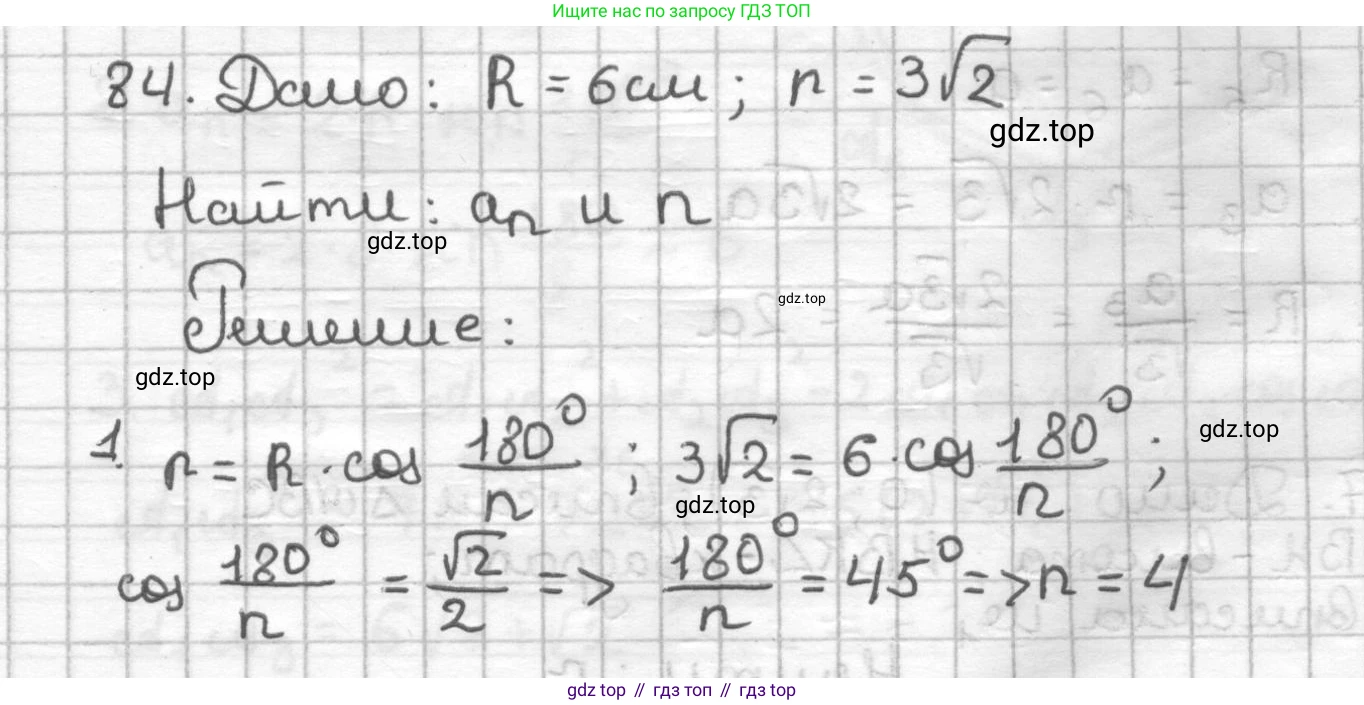 Ищите нас по запросу ГДЗ ТОП
84. Дано: R = 6 см; r = 3√2
gdz.top
Найти: aₙ и n
gdz.top
gdz.top
Решение:
gdz.top
1. r = R · cos 180°/n ; 3√2 = 6 · cos 180°/n ;
gdz.top
gdz.top
cos 180°/n = √2/2 => 180°/n = 45° => n = 4
gdz.top // гдз топ // гдз top